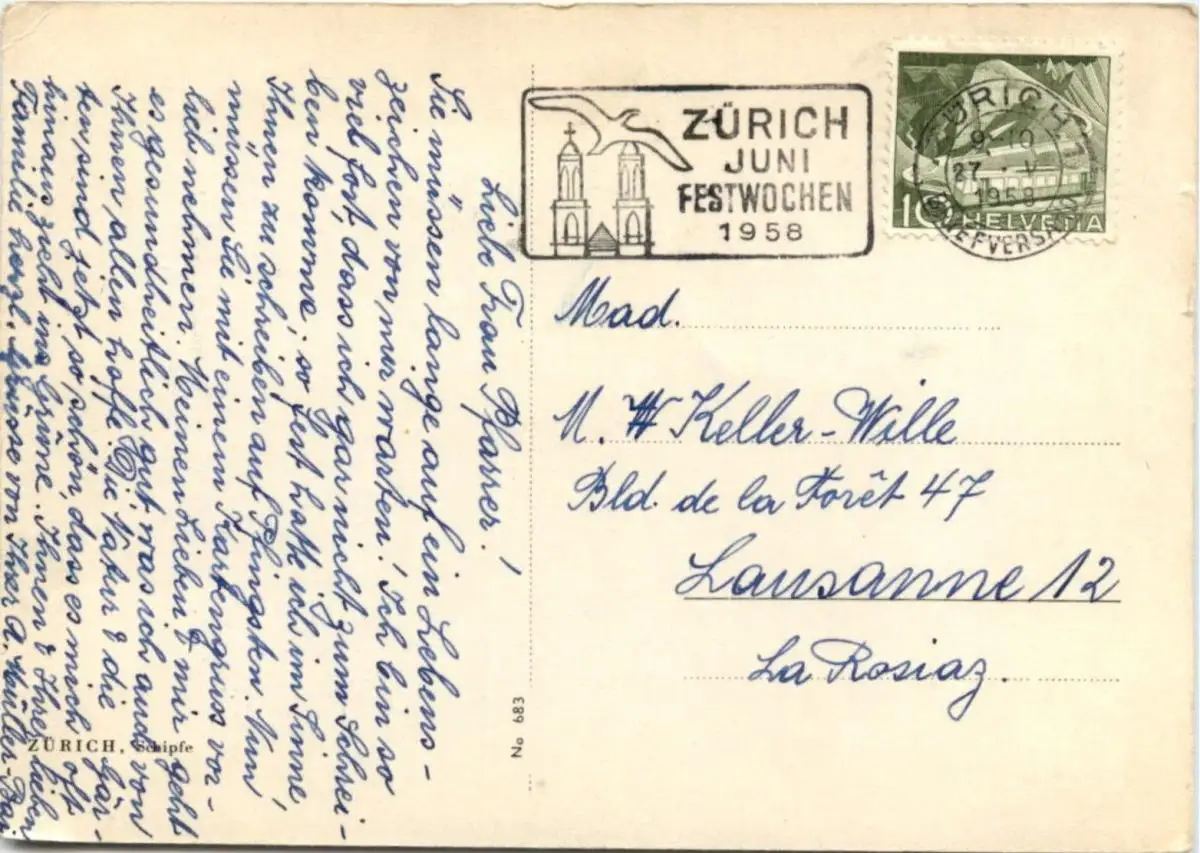 ZÜRICH
JUNI
FESTWOCHEN
1958
ZÜRICH
9-10
27. V.
1958
BRIEFVERSAND
10 HELVETIA
Mad.
M. Keller-Wille
Bld. de la Forêt 47
Lausanne 12
La Rosiaz.
Liebe Frau Pfarrer!
Sie müssen lange auf ein Lebens-
zeichen von mir warten! Ich bin so
viel fort, dass ich gar nicht zum Schrei-
ben komme. so fest hatte ich im Sinne
Ihnen zu schreiben auf Pfingsten. Nun
müssen Sie mit einem Kartengruss vor-
lieb nehmen. Meinen Lieben & mir geht
es gesundheitlich gut was ich auch von
Ihnen allen hoffe. Die Natur & die Gär-
ten sind jetzt so schön, dass es mich oft
hinaus zieht ins Grüne. Ihnen & Ihrer lieben
Familie herzl. Grüsse von Ihrer A. Müller-
ZÜRICH, Schipfe
No 683